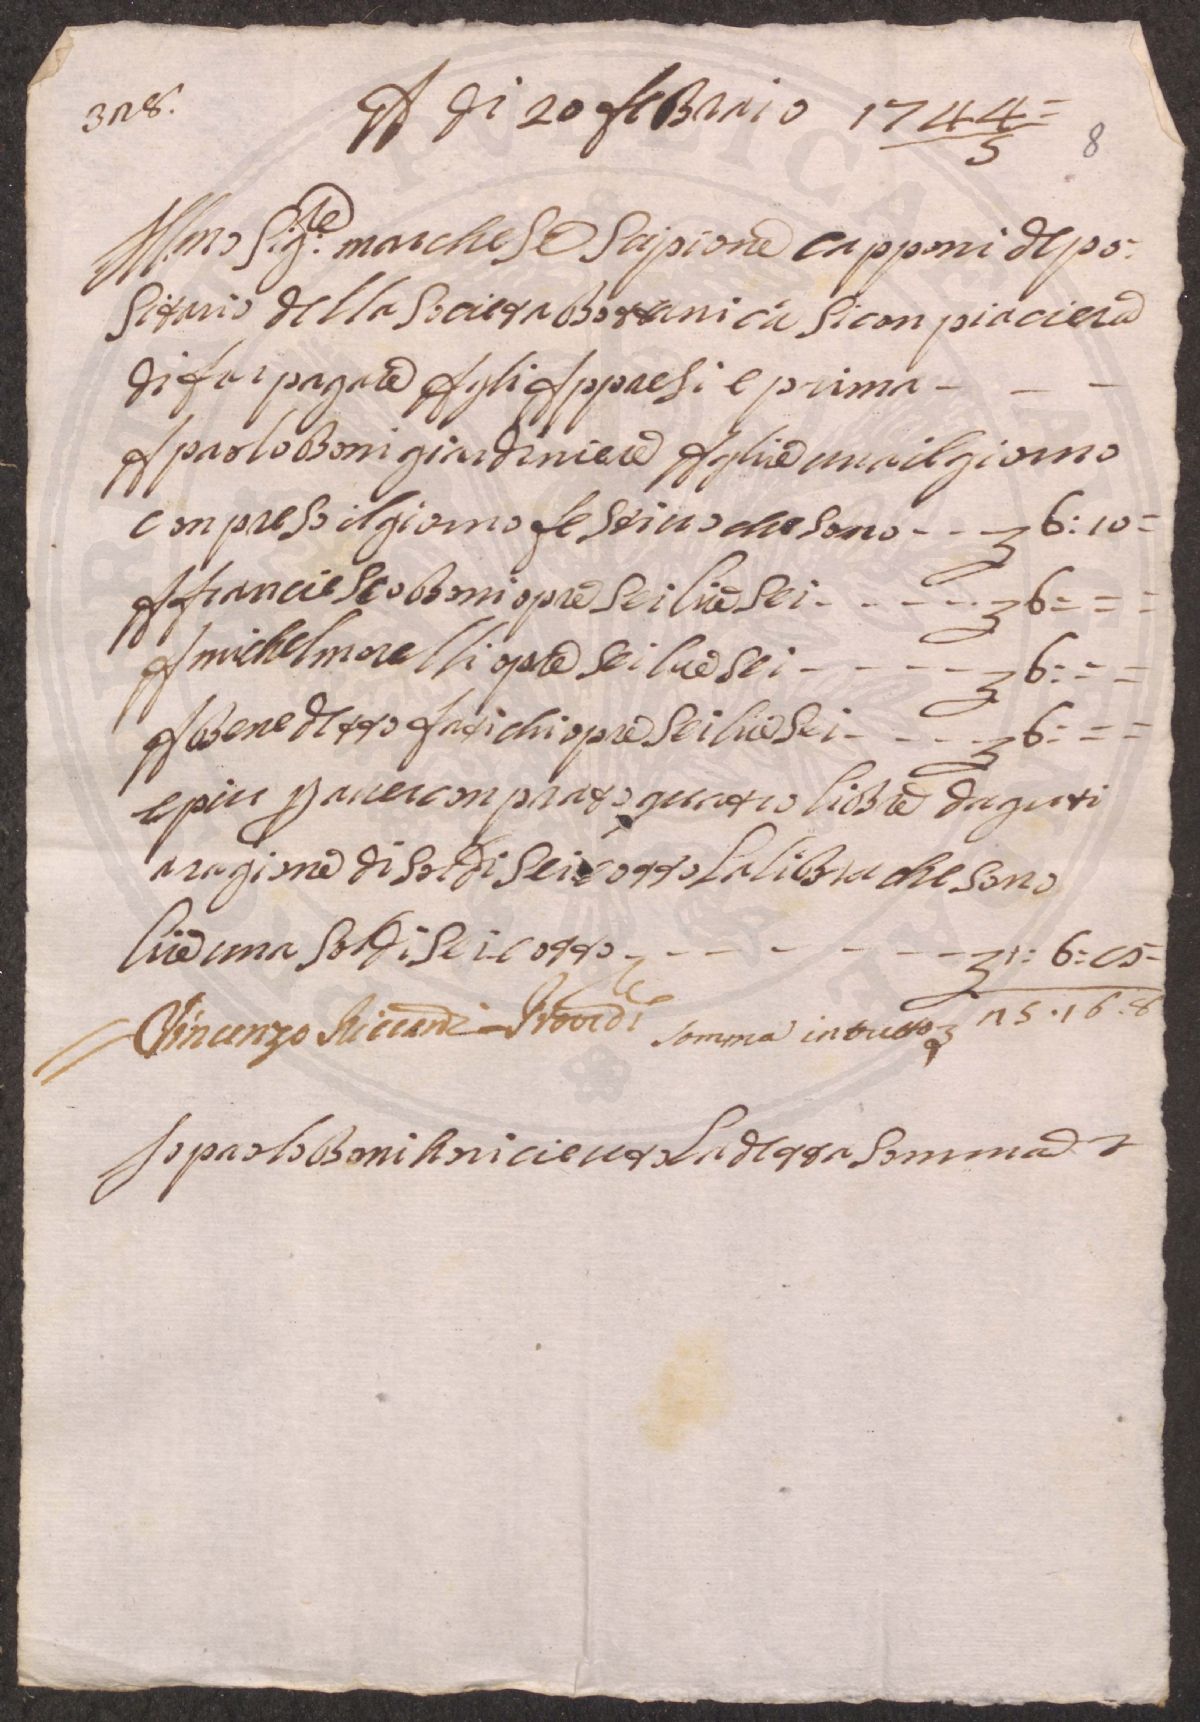 328.
A di 20 feBraio 1744=
5
8
Illmo Sigre: marchese Scipione capponi depo-
sitario della Societa Bottanica si con piaciera
di far pagare Agli Appresi e prima - - -
A paolo Boni giardiniere A lire una il giorno
con preso il giorno festiuo che sono - - - 6: 10=
A francieSco Boni opre sei lire sei - - - - - 6= = =
A michel morelli opre sei lire sei - - - - - 6: = =
A Benedetto fatichi opre sei lire sei - - - - 6: = =
e piu p auer con prato quatro liBre d aguti
a ragione di soldi sei e otto la liBra che sono
lire una soldi sei e otto - - - - - - - 1: 6:
Vincenzo Provdi
somma in tutto 25.16.8
Io paolo Boni ho ricieuto La detta Somma